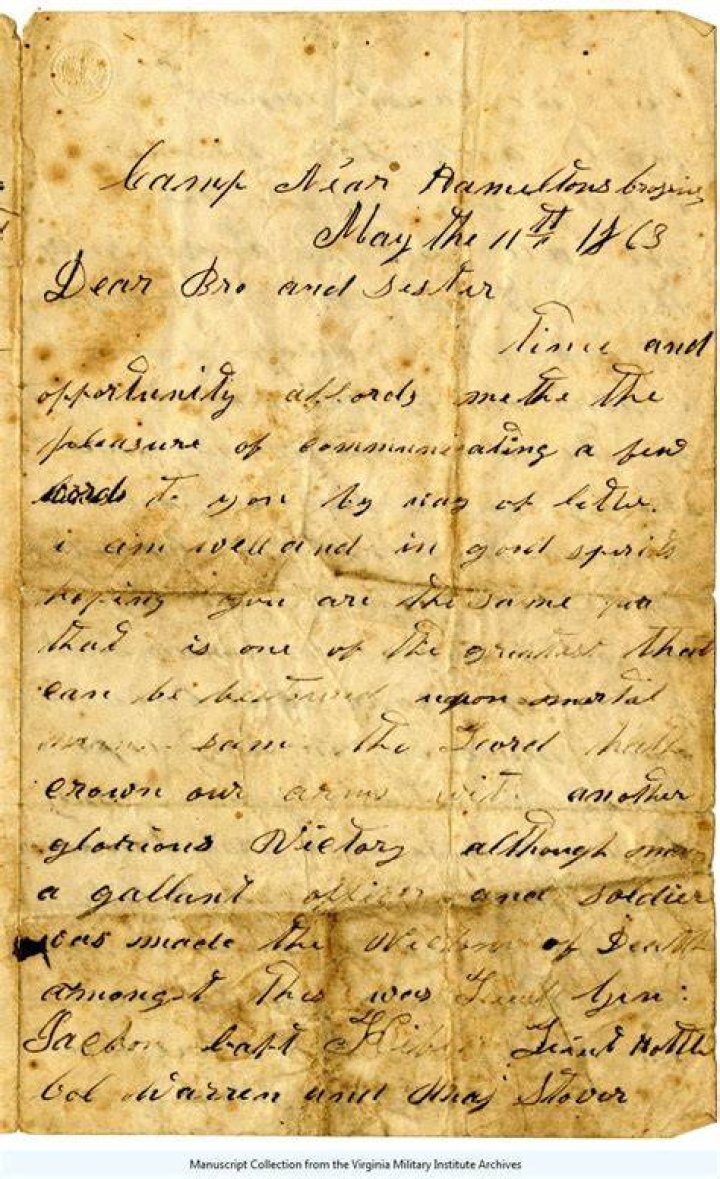 Camp Near Hamiltons Crosing
May the 11th 1863
Dear Bro and Sister
Time and
opportunity affords me the the
pleasure of communicating a few
words to you by way of letter.
i am well and in good spirits
hoping you are the same
that is one of the greatest that
can be bestowed upon mortal
same the Lord hath
crown our arms with another
glorious Victory although many
a gallant officer and soldier
was made the Victims of Death
amongst this was Lieut Gen:
Jackson Capt Lieut Hottle
Col Warren and Maj Stover
Manuscript Collection from the Virginia Military Institute Archives